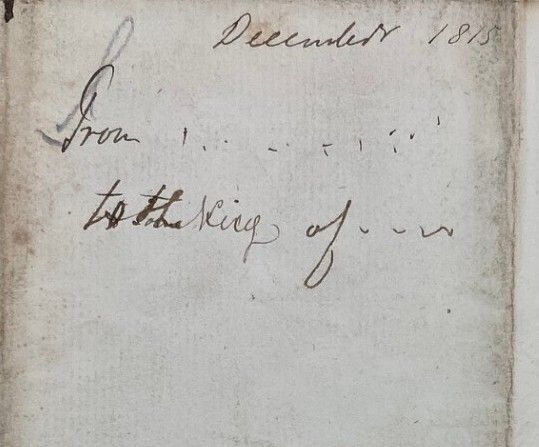 December 1815
From . . . . . . . . .
to the King of . . . .